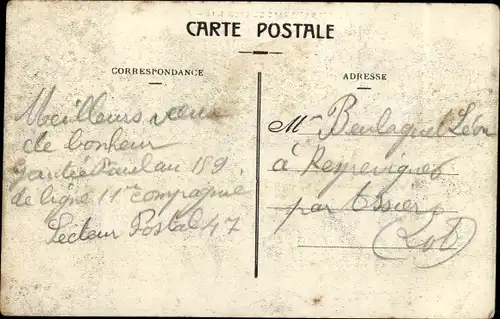 CARTE POSTALE
CORRESPONDANCE
Meilleurs vœux
de bonheur
Paul au 189
de ligne 11me compagnie
Secteur Postal 47
ADRESSE
Mr Léon
à Reyrevignes
par Assier
(Lot)